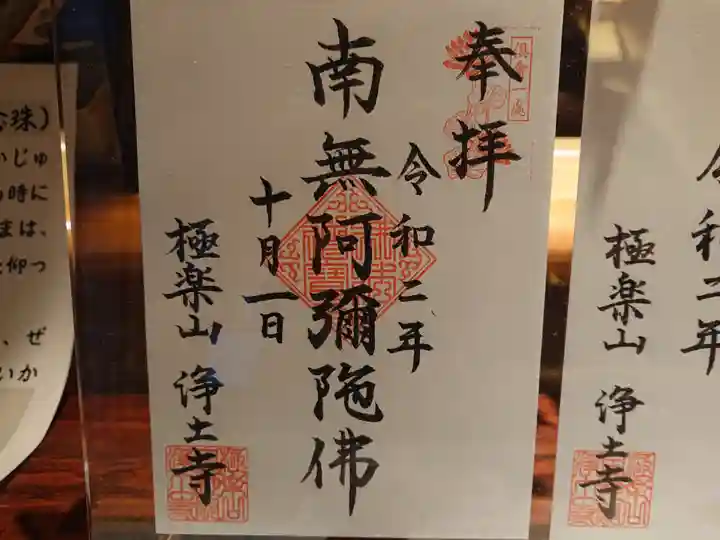 奉拝
倶會一處
令和二年
南無阿彌陀佛
十月一日
極楽山 浄土寺
令和二年
極楽山 浄土寺
珠）
いじゅ
時に
は、
仰つ
、ぜ
いか